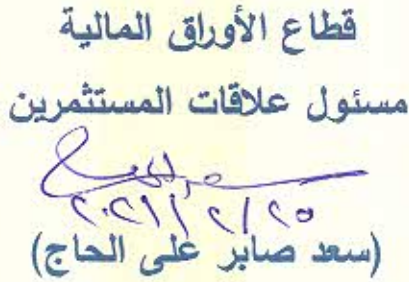 قطاع الأوراق المالية
مسئول علاقات المستثمرين
٢٠٢١/٢/٢٥
(سعد صابر على الحاج)